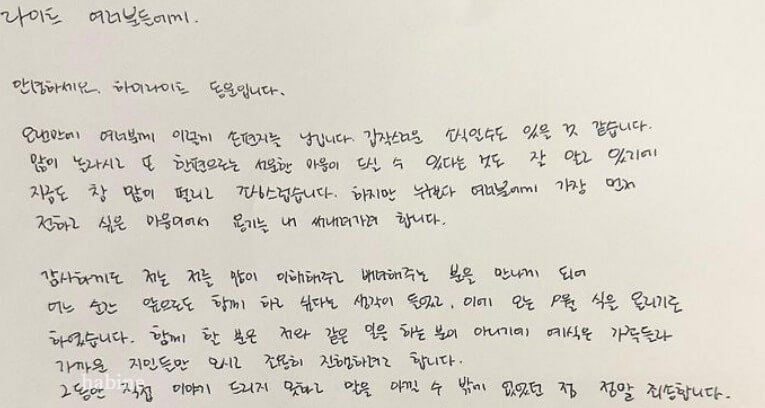 라이트 여러분들에게.
안녕하세요, 하이라이트 동운입니다.
오랜만에 여러분께 이렇게 손편지를 남깁니다. 갑작스러운 소식일수도 있을 것 같습니다.
많이 놀라시고 또 한편으로는 서운한 마음이 드실 수 있다는 것도 잘 알고 있기에
지금도 참 맘이 떨리고 조심스럽습니다. 하지만 누구보다 여러분에게 가장 먼저
전하고 싶은 마음이어서 용기를 내 써내려가려 합니다.
감사하게도 저는 저를 많이 이해해주고 배려해주는 분을 만나게 되어
어느 순간 앞으로도 함께 하고 싶다는 생각이 들었고, 이에 오는 9월 식을 올리기로
하였습니다. 함께 할 분은 저와 같은 일을 하는 분이 아니기에 예식은 가족들과
가까운 지인들만 모시고 조용히 진행하려고 합니다.
그동안 직접 이야기 드리지 못하고 말을 아낄 수 밖에 없었던 점 정말 죄송합니다.
habine